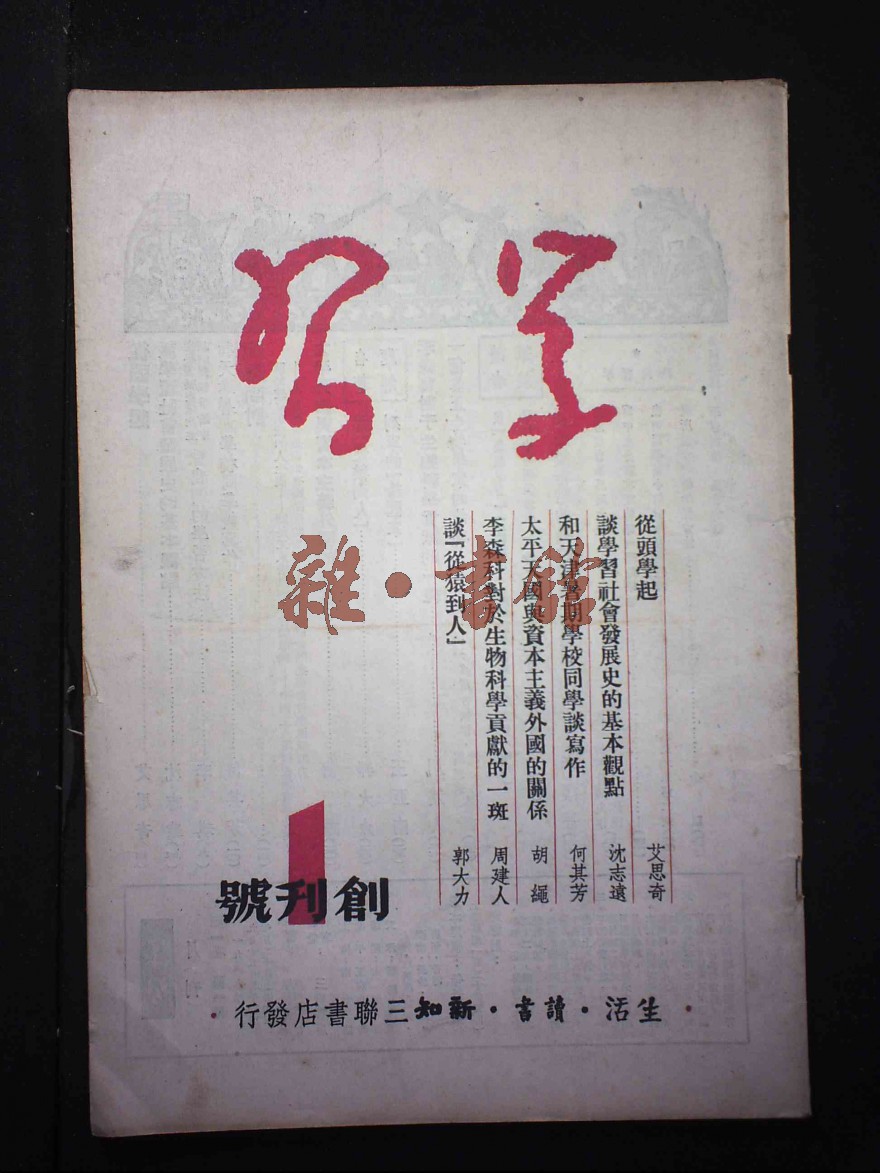 学习
從頭學起 艾思奇
談學習社會發展史的基本觀點 沈志遠
和天津暑期學校同學談寫作 何其芳
太平天國與資本主義外國的關係 胡繩
李森科對於生物科學貢獻的一斑 周建人
談『從猿到人』 郭大力
雜·書館
1
創刊號
·生活·讀書·新知三聯書店發行·